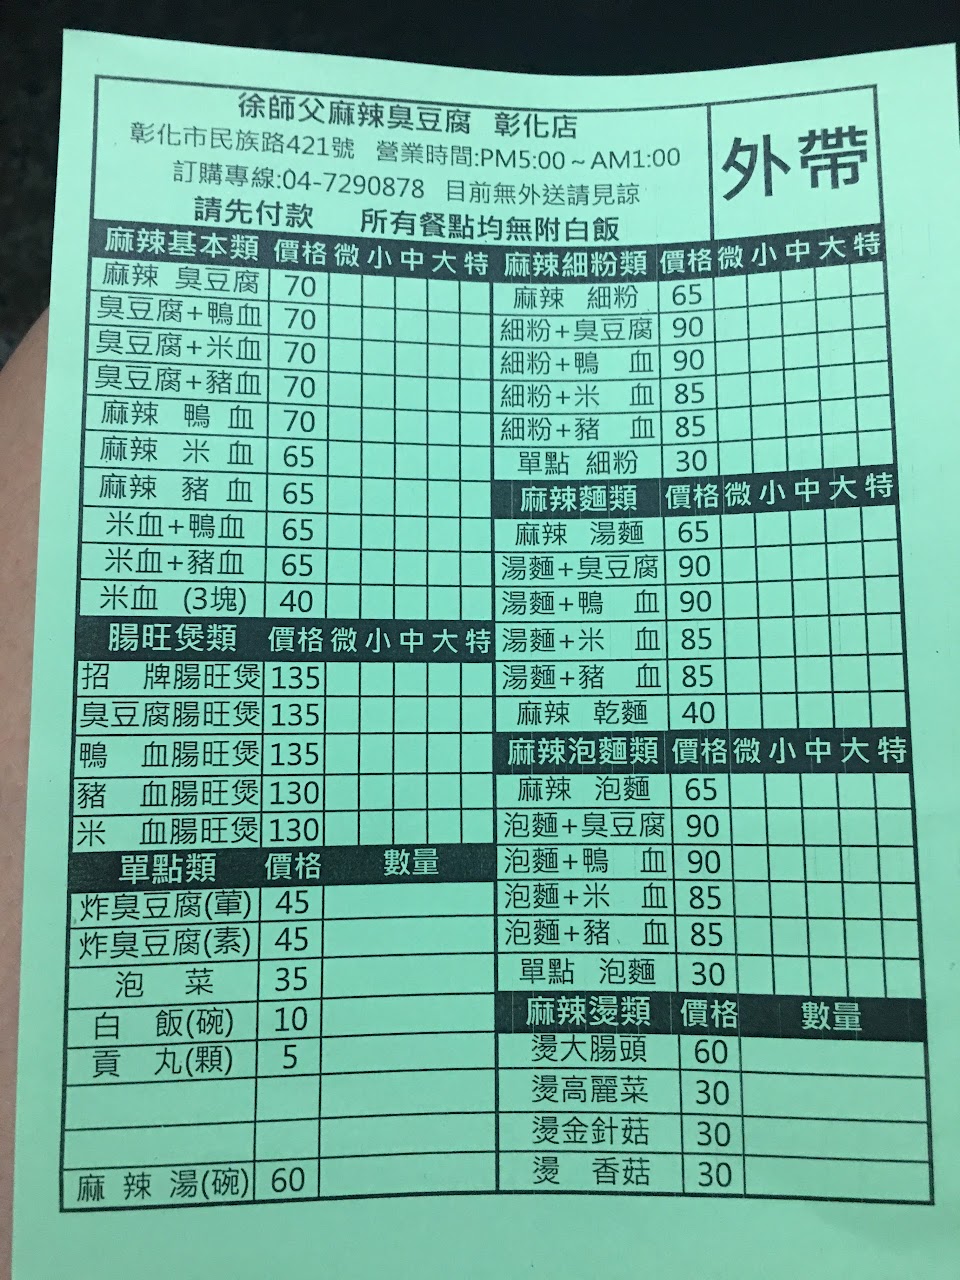 徐師父麻辣臭豆腐 彰化店
彰化市民族路421號 營業時間:PM5:00～AM1:00
訂購專線:04-7290878 目前無外送請見諒
請先付款 所有餐點均無附白飯
外帶
麻辣基本類 價格 微 小 中 大 特
麻辣 臭豆腐 70
臭豆腐+鴨血 70
臭豆腐+米血 70
臭豆腐+豬血 70
麻辣 鴨 血 70
麻辣 米 血 65
麻辣 豬 血 65
米血+鴨血 65
米血+豬血 65
米血 (3塊) 40
腸旺煲類 價格 微 小 中 大 特
招 牌腸旺煲 135
臭豆腐腸旺煲 135
鴨 血腸旺煲 135
豬 血腸旺煲 130
米 血腸旺煲 130
單點類 價格 數量
炸臭豆腐(葷) 45
炸臭豆腐(素) 45
泡 菜 35
白 飯(碗) 10
貢 丸(顆) 5
麻 辣 湯(碗) 60
麻辣細粉類 價格 微 小 中 大 特
麻辣 細粉 65
細粉+臭豆腐 90
細粉+鴨 血 90
細粉+米 血 85
細粉+豬 血 85
單點 細粉 30
麻辣麵類 價格 微 小 中 大 特
麻辣 湯麵 65
湯麵+臭豆腐 90
湯麵+鴨 血 90
湯麵+米 血 85
湯麵+豬 血 85
麻辣 乾麵 40
麻辣泡麵類 價格 微 小 中 大 特
麻辣 泡麵 65
泡麵+臭豆腐 90
泡麵+鴨 血 90
泡麵+米 血 85
泡麵+豬 血 85
單點 泡麵 30
麻辣燙類 價格 數量
燙大腸頭 60
燙高麗菜 30
燙金針菇 30
燙 香菇 30